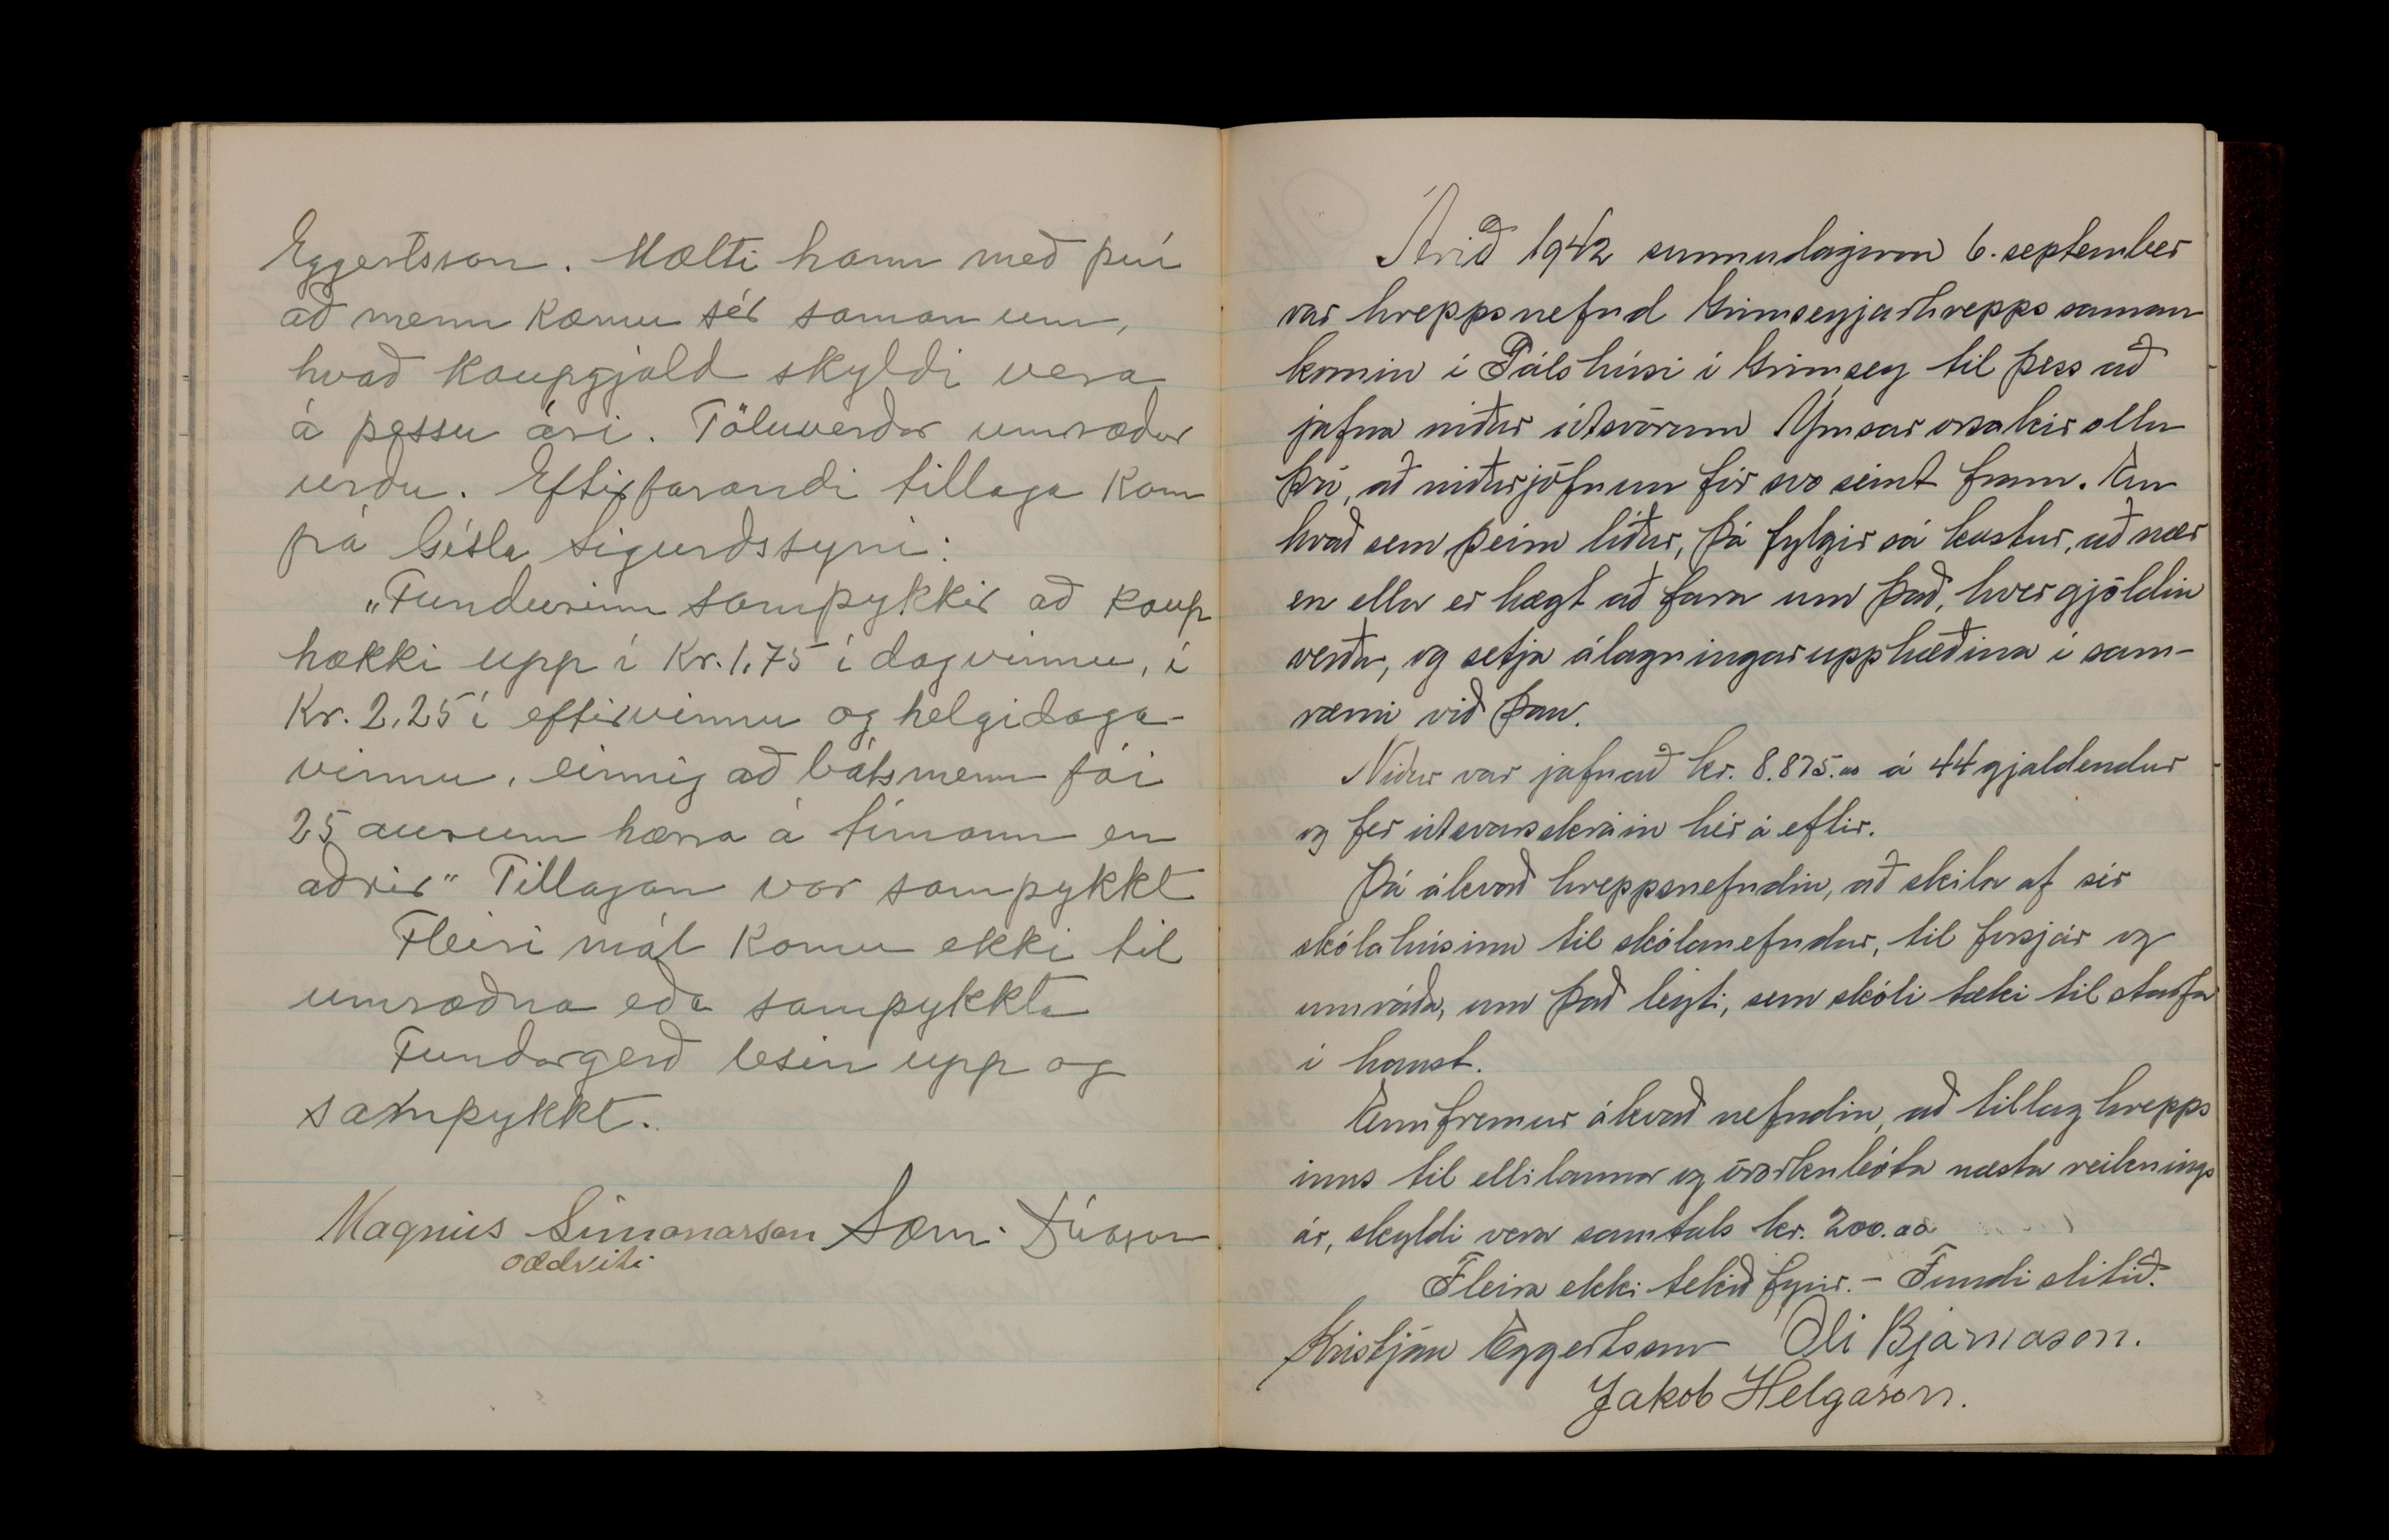 Eggertsson. Mælti hann með því
að menn kæmu sér saman um,
hvað kaupgjald skyldi vera
á þessu ári. Töluverðar umræður
urðu. Eftirfarandi tillaga kom
frá Gísla Sigurðssyni:
„Fundurinn samþykkir að kaup
hækki upp í Kr. 1,75 í dagvinnu, í
Kr. 2,25 í eftirvinnu og helgidaga-
vinnu, einnig að bátsmenn fái
25 aurum hærra á tímann en
aðrir“ Tillagan var samþykkt
Fleiri mál komu ekki til
umræðna eða samþykkta
Fundargerð lesin upp og
samþykkt.
Magnús Símonarson Sæm.
oddviti
Árið 1942 sunnudaginn 6. september
var hreppsnefnd Grímseyjarhrepps saman
komin í Pálshúsi í Grímsey til þess að
jafna niður útsvörum Ýmsar orsakir ollu
því, að niðurjöfnun fór svo seint fram. En
hvað sem þeim líður, þá fylgir sá kostur, að nær
en ella er hægt að fara um það, hver gjöldin
verða, og setja álagningarupphæðina í sam-
ræmi við þau.
Niður var jafnað kr. 8.875.00 á 44 gjaldendur
og fer útsvarsskráin hér á eftir.
Þá ákvað hreppsnefndin, að skila af sér
skólahúsinu til skólanefndar, til forsjár og
umráða, um það leyti, sem skóli tæki til starfa
í haust.
Ennfremur ákvað nefndin, að tillag hrepps
ins til ellilauna og örorkubóta næsta reiknings
ár, skyldi vera samtals kr. 200.00
Fleira ekki tekið fyrir. - Fundi slitið.
Kristján Eggertsson Óli Bjarnason.
Jakob Helgason.